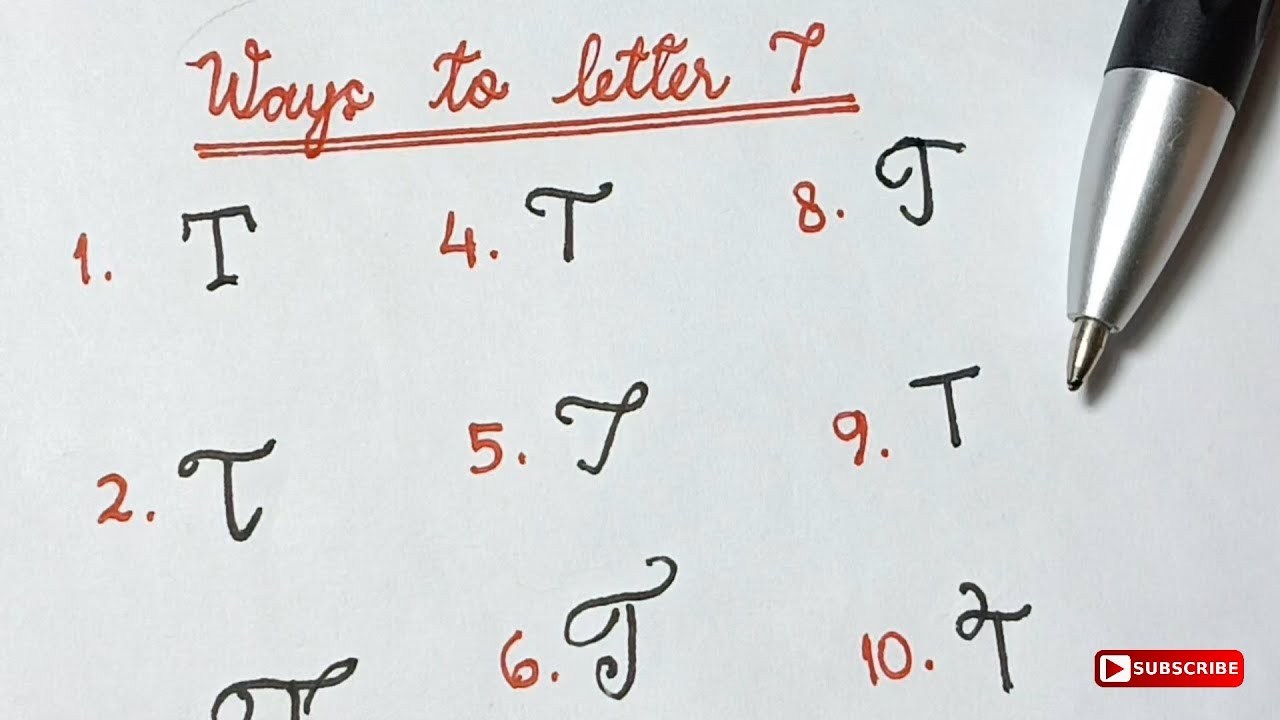 Ways to letter T
1. T
4. T
8. T
2. T
5. T
9. T
6. T
10. T
T
SUBSCRIBE